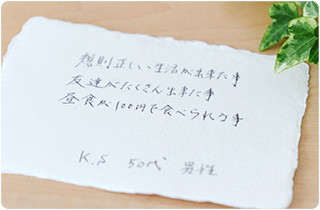 規則正しい生活が出来た事
友達がたくさん出来た事
昼食が100円で食べられる事
K.S 50代 男性